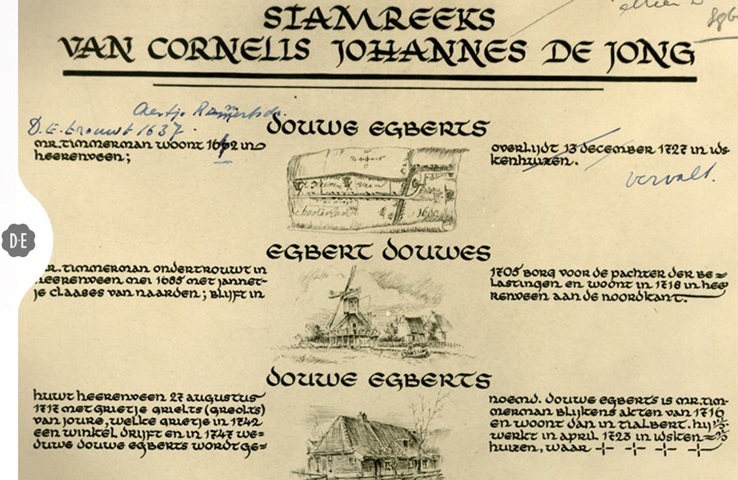 STAMREEKS
VAN CORNELIS JOHANNES DE JONG
D.E. trouwt 1637.
DOUWE EGBERTS
MR. TIMMERMAN WOONT 1692 IN
HEERENVEEN;
OVERLIJDT 13 DECEMBER 1727 IN IDS-
KENHUIZEN.
vervalt.
1600
EGBERT DOUWES
MR. TIMMERMAN ONDERTROUWT IN
HEERENVEEN MEI 1685 MET JANNET-
JE CLAASES VAN NAARDEN; BLIJFT IN
1705 BORG VOOR DE PACHTER DER BE-
LASTINGEN EN WOONT IN 1718 IN HEE
RENVEEN AAN DE NOORDKANT.
DOUWE EGBERTS
HUWT HEERENVEEN 27 AUGUSTUS
1717 MET GRIETJE GRIELTS (GREOLTS)
VAN JOURE, WELKE GRIETJE IN 1742
EEN WINKEL DRIJFT EN IN 1747 WE-
DUWE DOUWE EGBERTS WORDT GE-
NOEMD. DOUWE EGBERTS IS MR. TIM-
MERMAN BLIJKENS AKTEN VAN 1716
EN WOONT DAN IN TIALBERT. HIJ
WERKT IN APRIL 1723 IN IDSKEN-
HUIZEN, WAAR
D·E